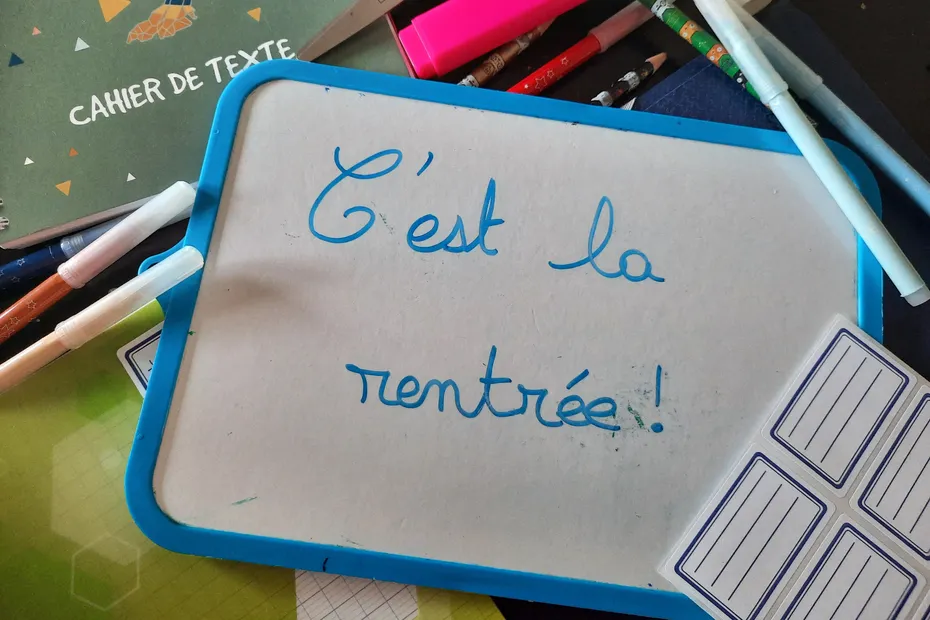 CAHIER DE TEXTE
C'est la
rentrée !